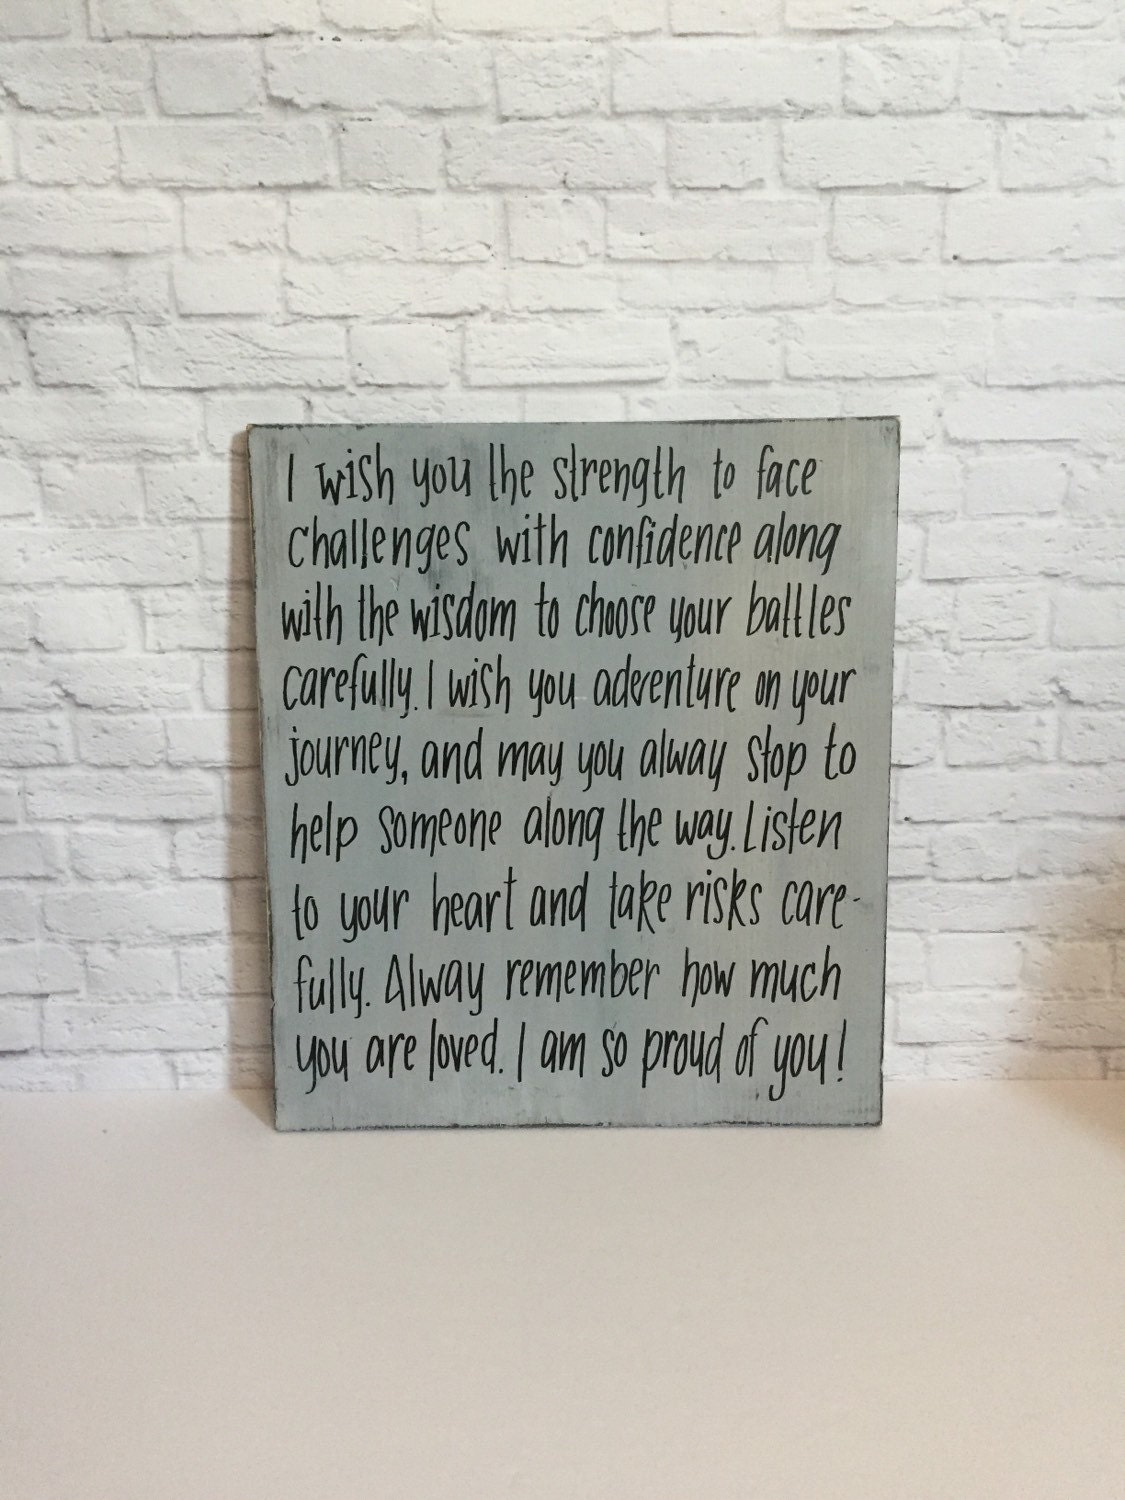 I wish you the strength to face
challenges with confidence along
with the wisdom to choose your battles
carefully. I wish you adventure on your
journey, and may you alway stop to
help someone along the way. Listen
to your heart and take risks care-
fully. Alway remember how much
you are loved. I am so proud of you!